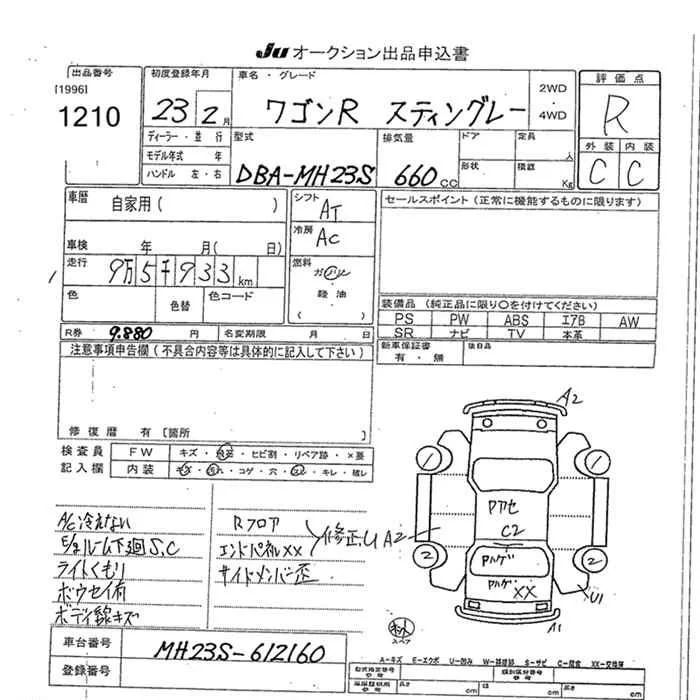 JU オークション出品申込書
出品番号
[1996]
1210
初度登録年月
23 2月
車名・グレード
ワゴンR スティングレー
2WD
・
4WD
評価点
R
外装 内装
C C
ディーラー・並行
モデル年式 年
ハンドル 左・右
型式
DBA-MH23S
排気量
660cc
ドア
形状
定員
人
積載
Kg
車歴
自家用( )
車検 年 月( 日)
走行
9万5千933km
色
色替
色コード
シフト
AT
冷房
AC
燃料
ガソリン
・
軽油
( )
セールスポイント(正常に機能するものに限ります)
装備品(純正品に限り○を付けてください)
PS PW ABS エアB AW
SR ナビ TV 本革
新車保証書
有・無
後日品
R券 9.880 円 名変期限 月 日
注意事項申告欄(不具合内容等は具体的に記入して下さい)
修復歴 有[箇所 ]
検査員
記入欄
FW キズ・飛石・ヒビ割・リペア跡・×要
内装 キズ・汚れ・コゲ・穴・スレ・キレ・破レ
A/C冷えない
E/gルーム下廻S,C
ライトくもり
ボウセイ有
ボディ線キズ
Rフロア
エンドパネルXX
サイドメンバー歪
修正
U A2
A2
1
1
Pアセ
C2
2
2
Pハゲ
Pハゲ
XX
U1
A1
スペア
車台番号
MH23S-612160
登録番号
A-キズ E-エクボ U-凹み W-補修跡 S-サビ C-腐食 XX-交換済
型式指定番号
類別区分番号
長さ cm
幅 cm
高さ cm